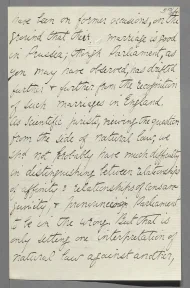 have been on former occasions, on the
ground that their marriage is good
in Prussia; though Parliament, as
you may have observed, has drifted
further & further from the recognition
of such marriages in England.
As scientific jurists, viewing the question
from the side of natural law, we
shd not probably have much difficulty
in distinguishing between relationships
of affinity & relationships of consan-
guinity, & pronouncing Parliament
to be in the wrong. But that is
only setting one interpretation of
natural law against another,